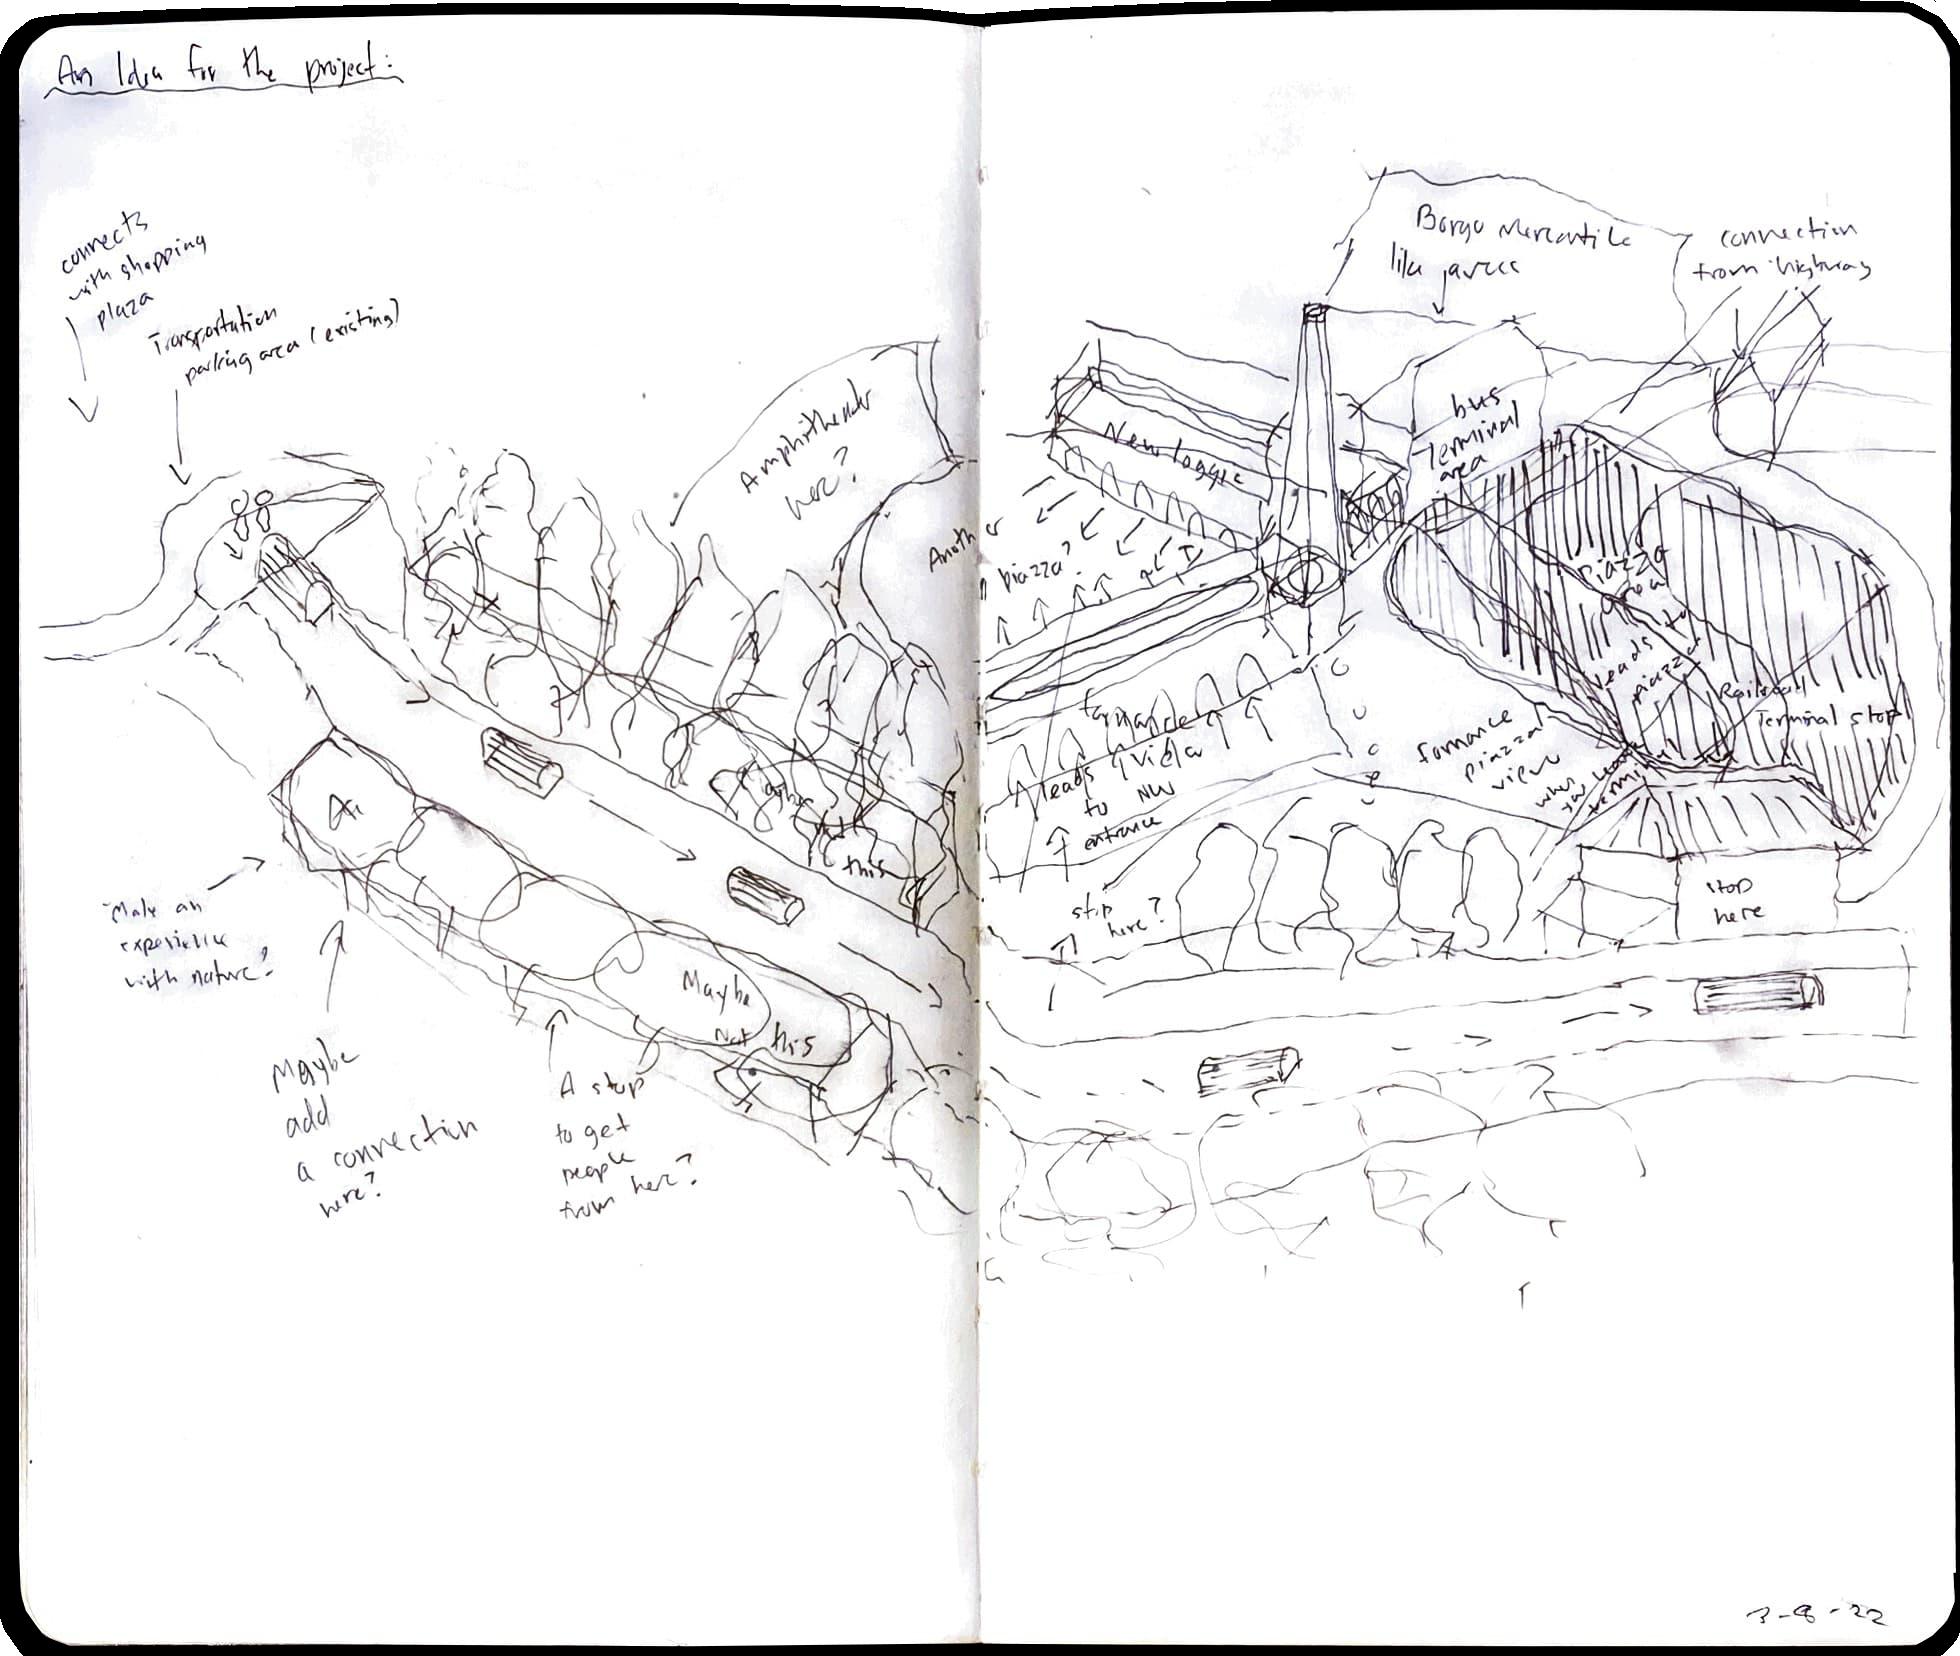 An Idea for the project:
connects
with shopping
plaza
Transportation
parking area (existing)
Amphitheater
here?
Another
piazza?
Maybe
this
Make an
experience
with nature?
Maybe
add
a connection
here?
A stop
to get
people
from here?
Maybe
Not this
Borgo Mercantile
like areas
connection
from highway
New loggia
bus
Terminal
area
Piazza
area
leads to
piazza
Railroad
Terminal stop
fornance
leads / view
to NW
entrance
fornance
piazza
view
when
you leave
terminal
stop
here?
stop
here
3-8-22